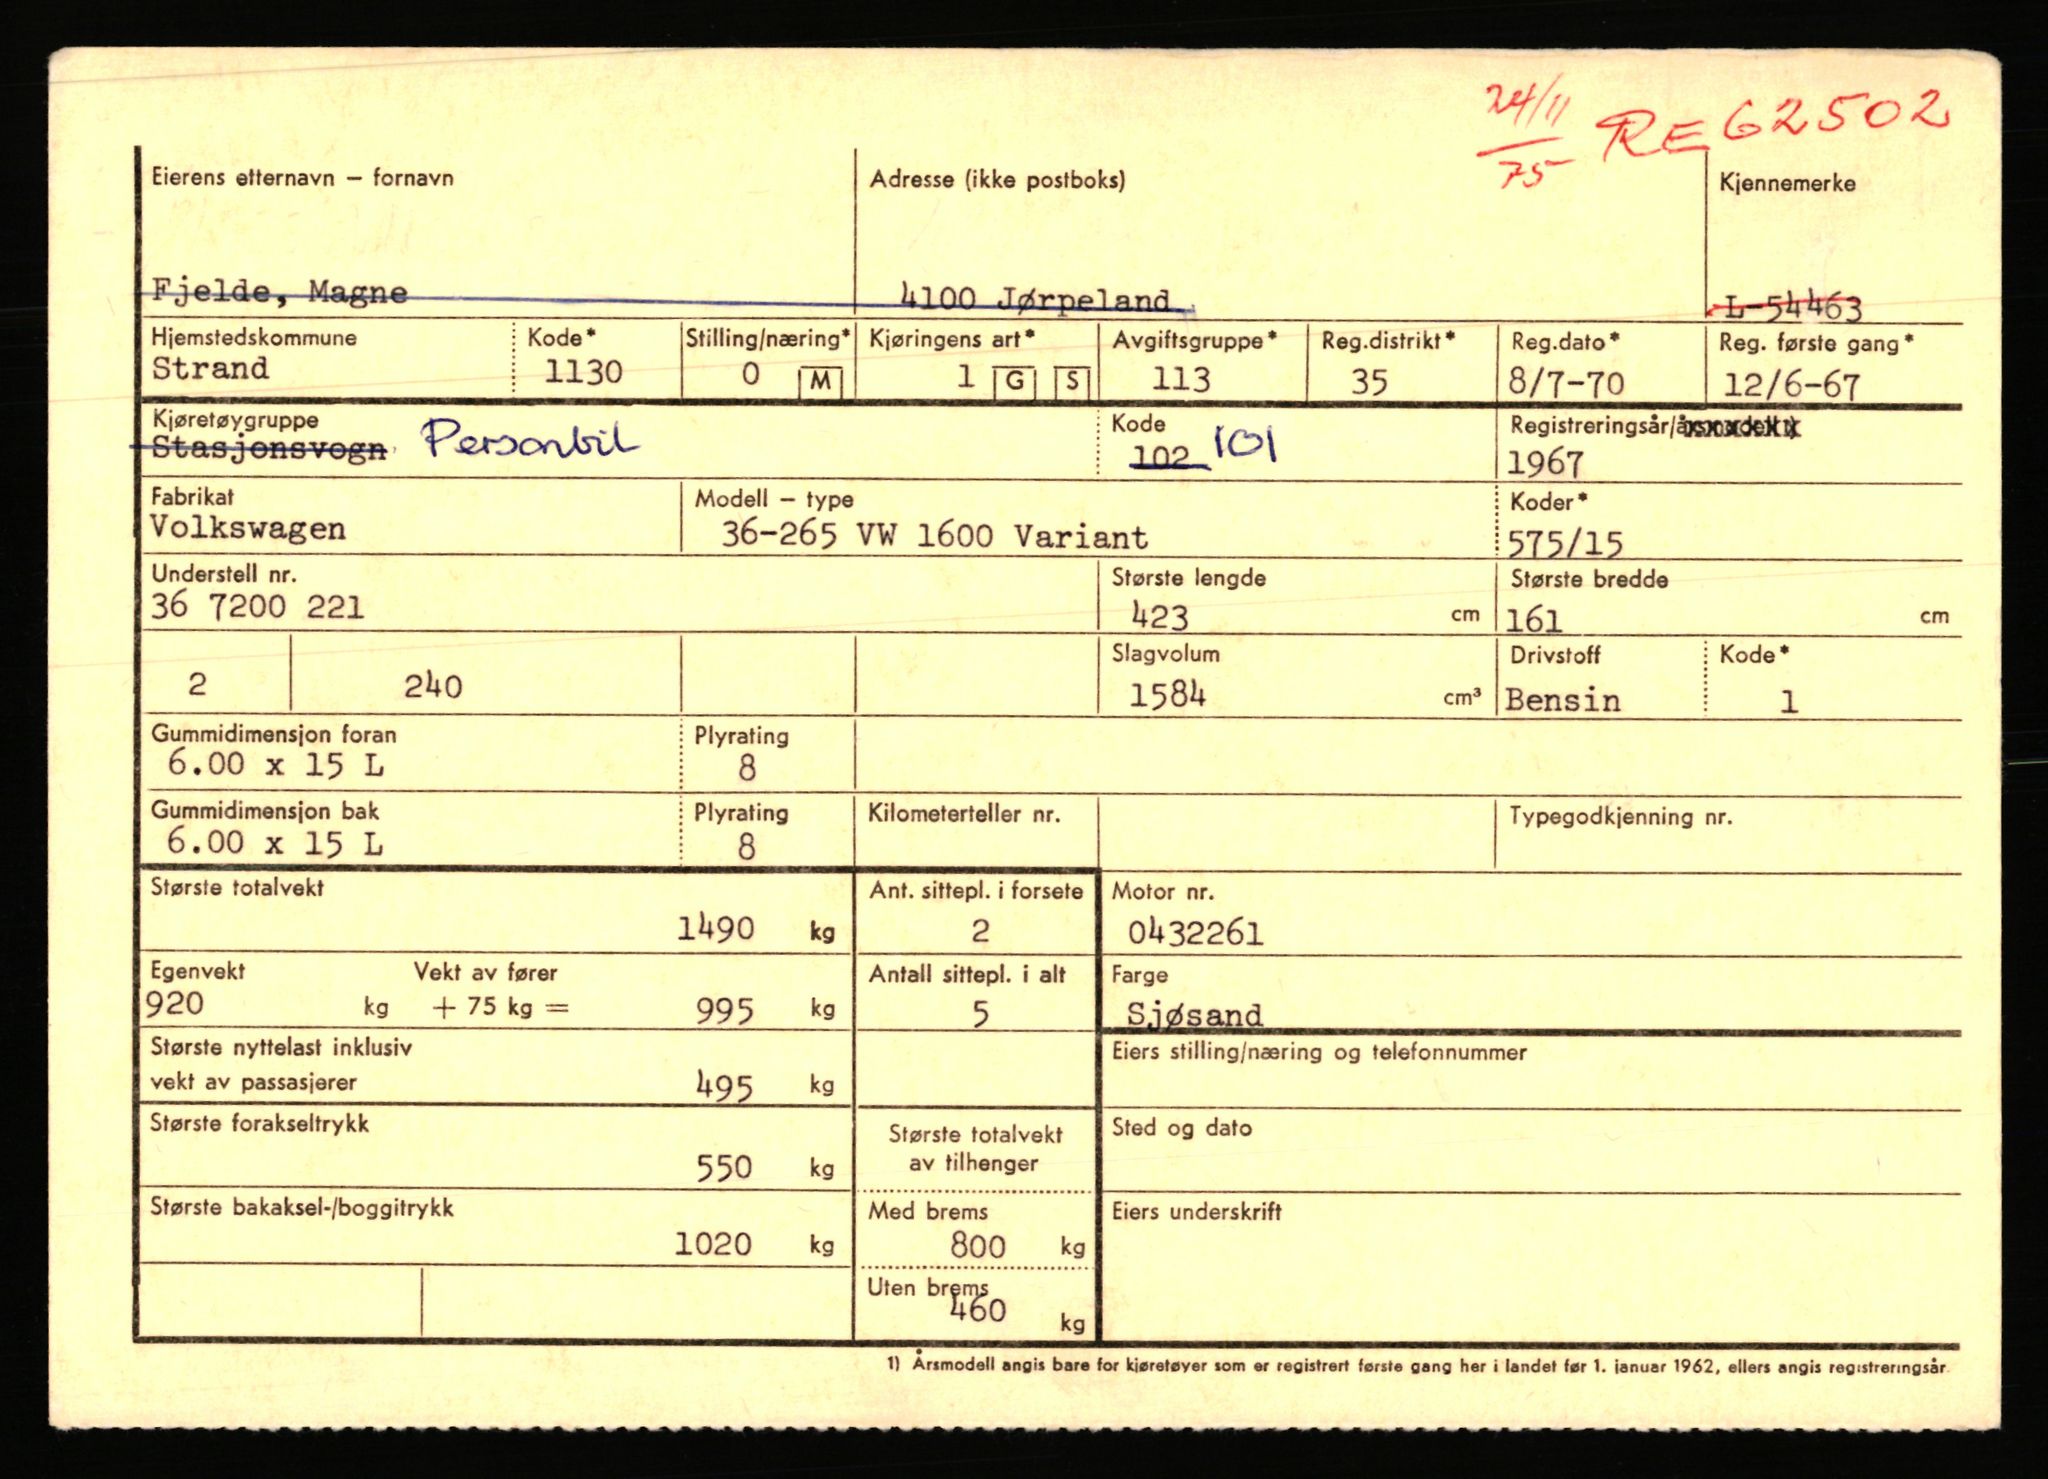 24/11
75 RE 62502
Eierens etternavn – fornavn Adresse (ikke postboks) Kjennemerke
Fjelde, Magne 4100 Jørpeland L-54463
Hjemstedskommune Kode* Stilling/næring* Kjøringens art* Avgiftsgruppe* Reg.distrikt* Reg.dato* Reg. første gang*
Strand 1130 0 M 1 G S 113 35 8/7-70 12/6-67
Kjøretøygruppe Kode Registreringsår/årsmodell 1)
Stasjonsvogn Personbil 102 101 1967
Fabrikat Modell – type Koder*
Volkswagen 36-265 VW 1600 Variant 575/15
Understell nr. Største lengde Største bredde
36 7200 221 423 cm 161 cm
Slagvolum Drivstoff Kode*
2 240 1584 cm³ Bensin 1
Gummidimensjon foran Plyrating
6.00 x 15 L 8
Gummidimensjon bak Plyrating Kilometerteller nr. Typegodkjenning nr.
6.00 x 15 L 8
Største totalvekt Ant. sittepl. i forsete Motor nr.
1490 kg 2 0432261
Egenvekt Vekt av fører Antall sittepl. i alt Farge
920 kg + 75 kg = 995 kg 5 Sjøsand
Største nyttelast inklusiv Eiers stilling/næring og telefonnummer
vekt av passasjerer 495 kg
Største forakseltrykk Største totalvekt Sted og dato
av tilhenger
550 kg
Største bakaksel-/boggitrykk Med brems Eiers underskrift
1020 kg 800 kg
Uten brems
460 kg
1) Årsmodell angis bare for kjøretøyer som er registrert første gang her i landet før 1. januar 1962, ellers angis registreringsår.